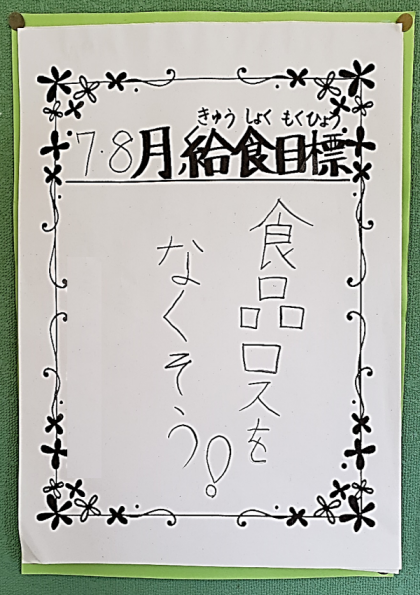 きゅう しょく もくひょう
7・8月給食目標
食品ロスを
なくそう!